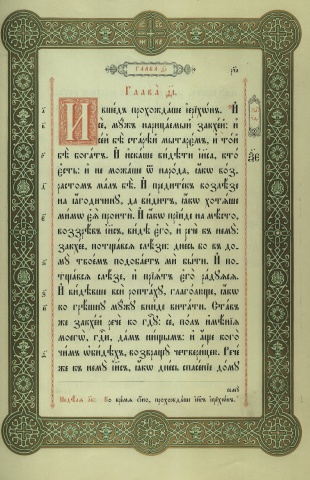 Глава̀ ѳ҃і.
Глава̀ ѳ҃і.
И҆ вше́дъ прохожда́ше і҆ерїхѡ́нъ. И҆
сѐ, мꙋ́жъ нарица́емый закхе́й: и҆
се́й бѣ̀ старѣ́й мытарє́мъ, и҆ то́й
бѣ̀ бога́тъ. И҆ и҆ска́ше ви́дѣти і҆и҃са, кто̀
є҆́сть: и҆ не можа́ше ѿ наро́да, ꙗ҆́кѡ во́з-
растомъ ма́лъ бѣ̀. И҆ предите́къ возлѣ́зе
на ꙗ҆годи́чинꙋ, да ви́дитъ, ꙗ҆́кѡ хотѧ́ше
ми́мѡ є҆ѧ̀ проитѝ. И҆ ꙗ҆́кѡ прїи́де на мѣ́сто,
воззрѣ́въ і҆и҃съ, ви́дѣ є҆го̀, и҆ речѐ къ немꙋ̀:
закхе́е, потща́всѧ слѣ́зи: дне́сь бо въ до-
мꙋ̀ твое́мъ подоба́етъ мѝ бы́ти. И҆ по-
тща́всѧ слѣ́зе, и҆ прїѧ́тъ є҆го̀ ра́дꙋѧсѧ.
И҆ ви́дѣвше всѝ ропта́хꙋ, глаго́люще, ꙗ҆́кѡ
ко грѣ́шнꙋ мꙋ́жꙋ вни́де вита́ти. Ста́въ
же закхе́й речѐ ко гдⷭ҇ꙋ: сѐ, по́лъ и҆мѣ́нїѧ
моегѡ̀, гдⷭ҇и, да́мъ ни́щымъ: и҆ а҆́ще кого̀
чи́мъ ѡ҆би́дѣхъ, возвращꙋ̀ четвери́цею. Рече́
же къ немꙋ̀ і҆и҃съ, ꙗ҆́кѡ дне́сь спасе́нїе до́мꙋ
семꙋ̀
Во вре́мѧ ѻ҆́но, прохожда́ше і҆и҃съ і҆ерїхѡ́нъ.